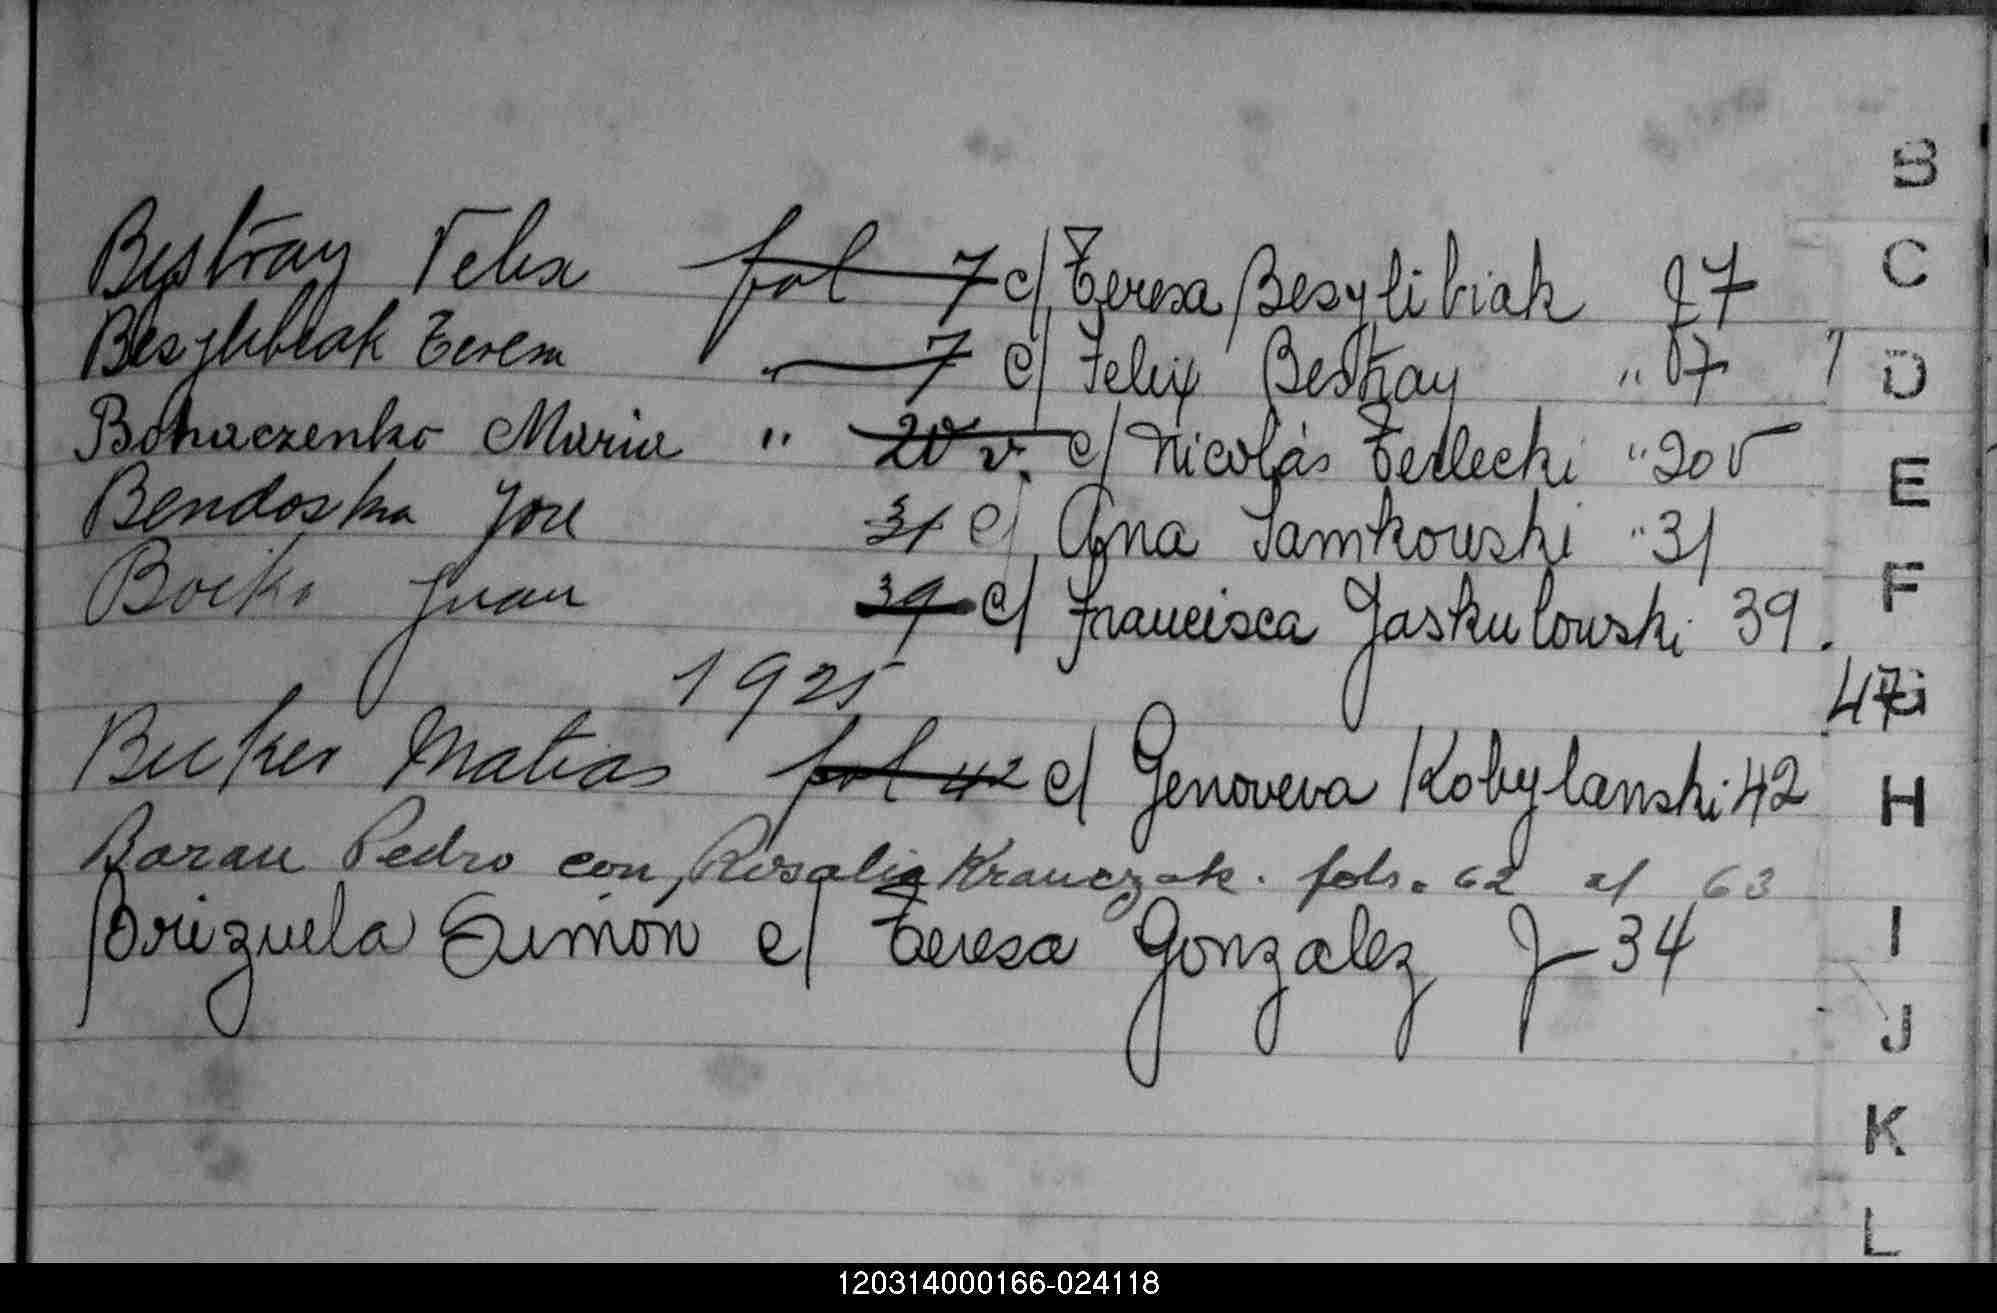 B
Bystray Felix fol 7 c/ Teresa Besylibiak f 7
C
Besylibiak Teresa 7 c/ Felix Bestray " 7
D
Bohaczenko Maria " 20 v. c/ Nicolás Terlecki " 20 v
E
Bendoska José 31 c/ Ana Samkowski " 31
F
Boiko Juan 39 c/ Francisca Jaskulowski 39.
1925
47
G
Bucker Matias fol 42 c/ Genoveva Kobylanski 42
H
Baran Pedro con Rosalia Krauczak. fols. 62 al 63
Brizuela Simón c/ Teresa Gonzalez f 34
I
J
K
L
120314000166-024118